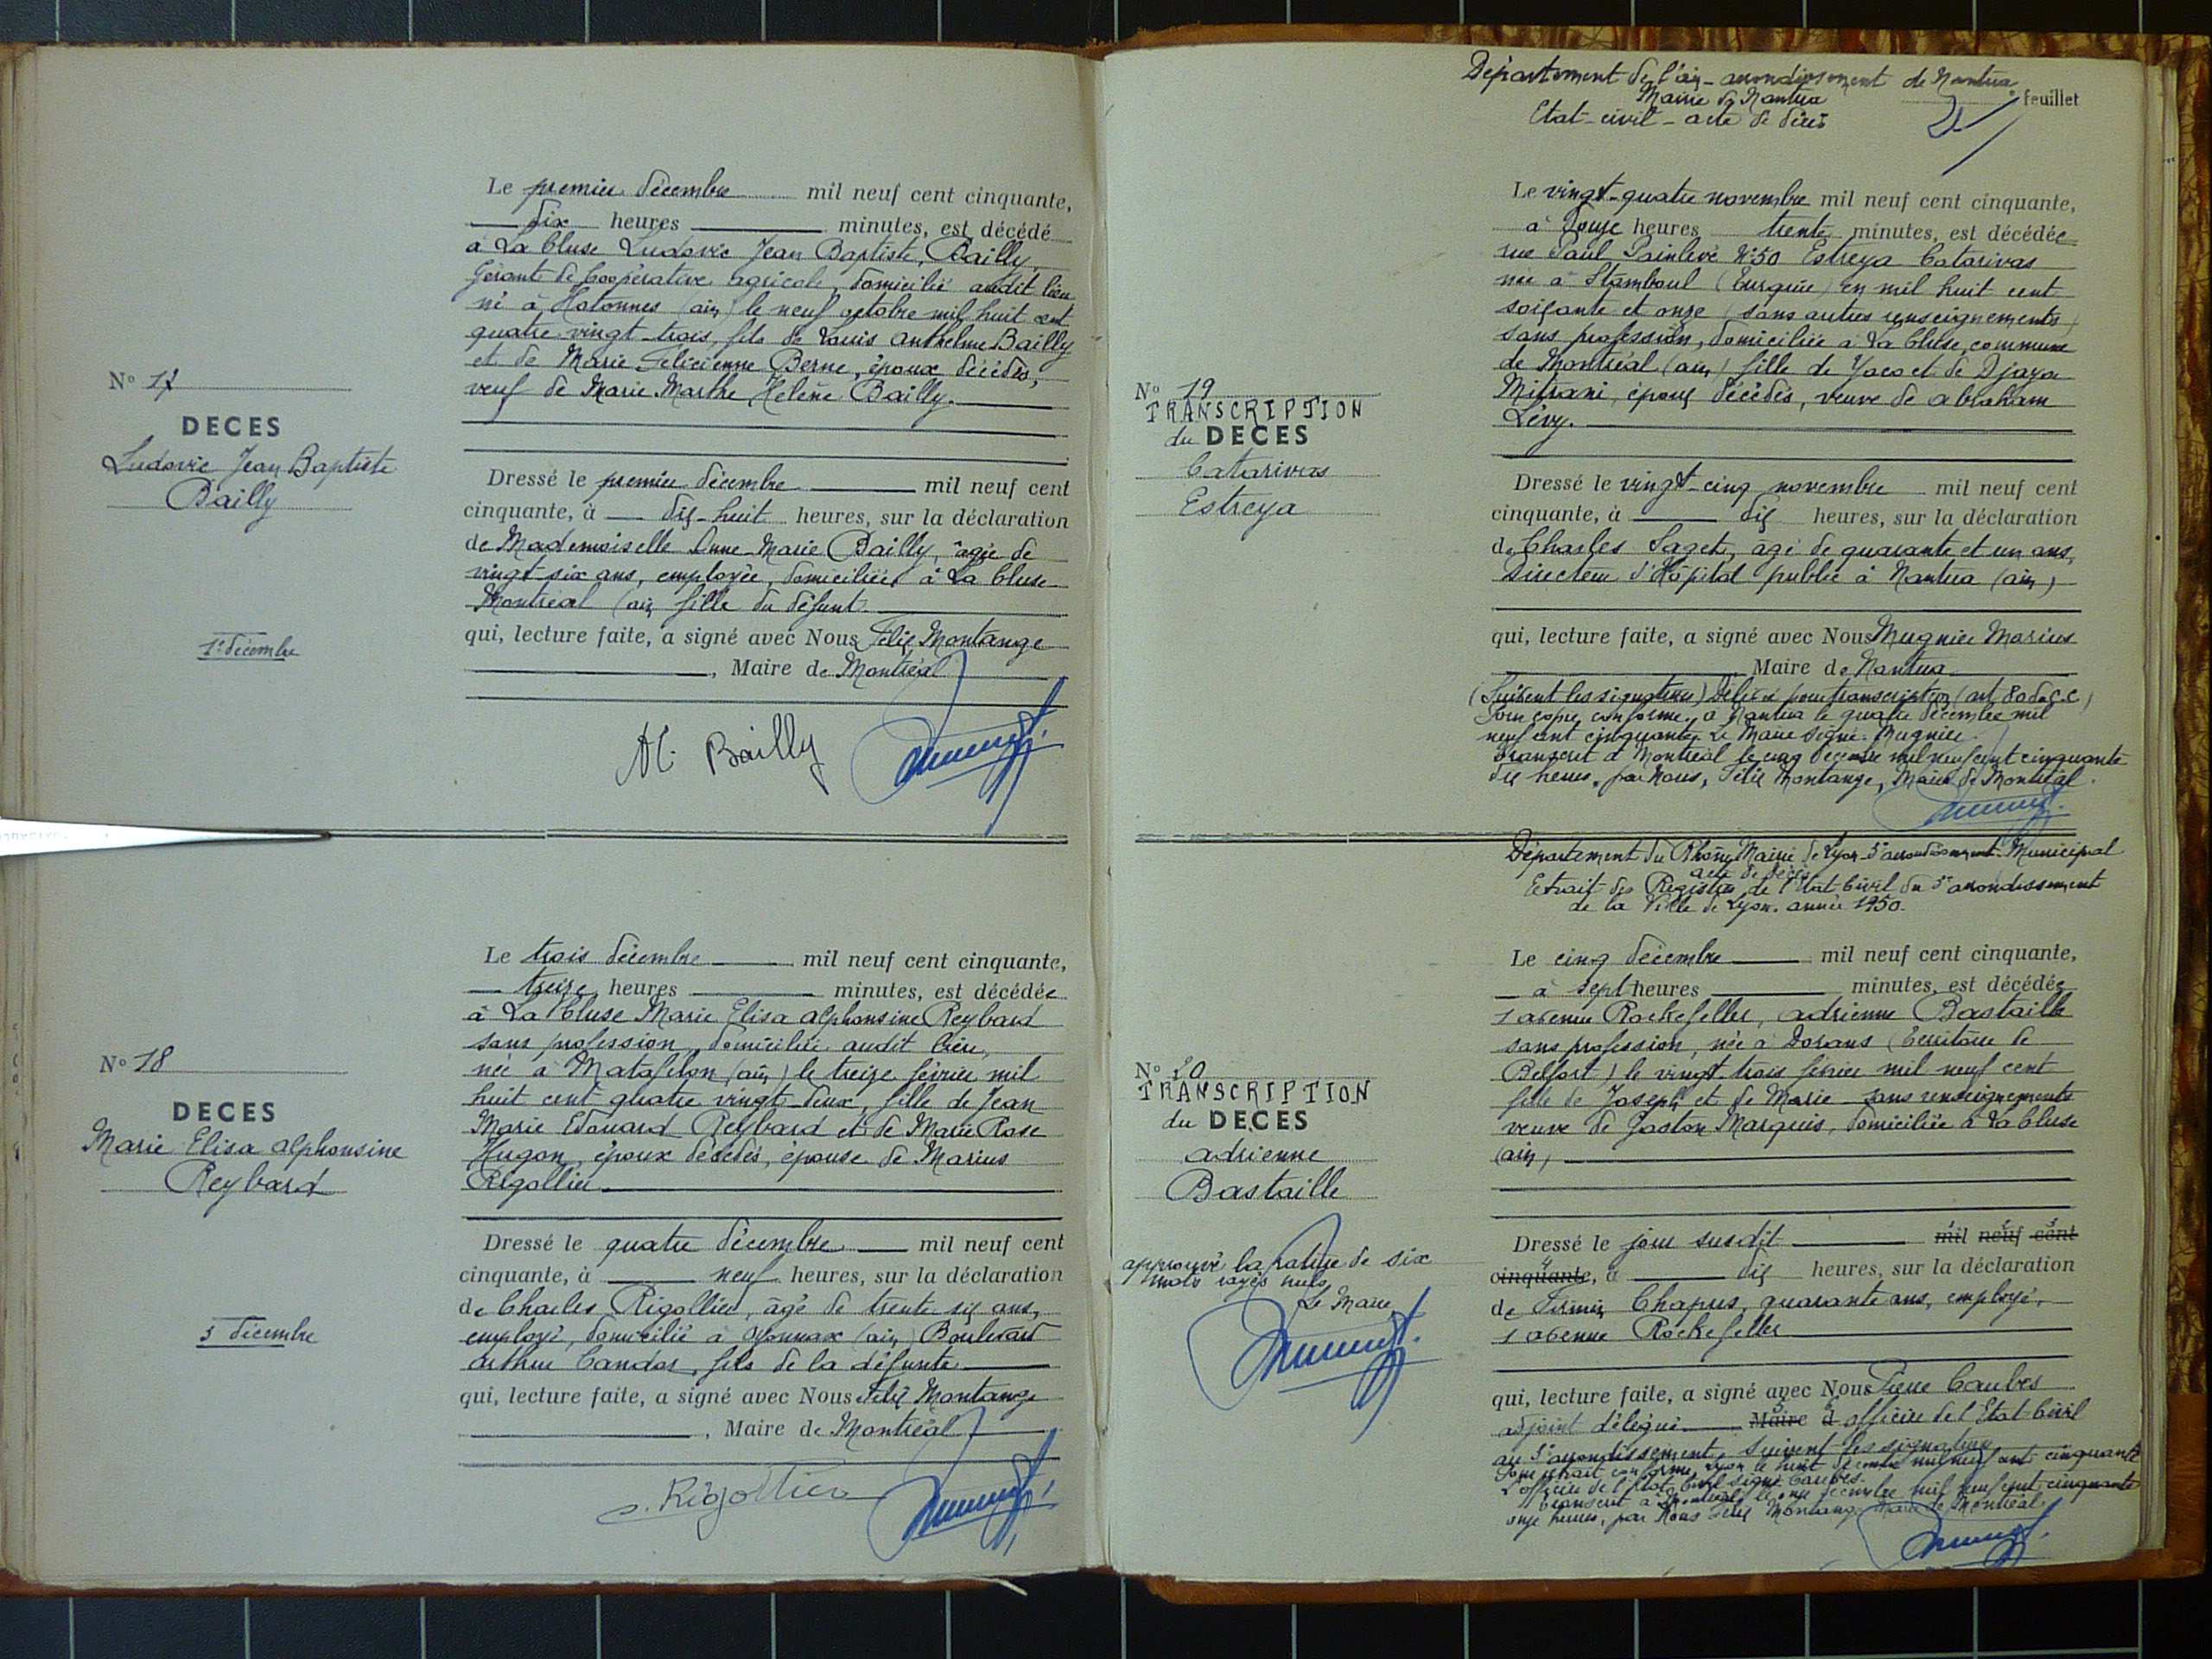 Le premier décembre mil neuf cent cinquante,
dix heures minutes, est décédé
à La Cluse Ludovic Jean Baptiste, Bailly,
Gérant de Coopérative agricole, domicilié audit lieu
né à Hotonnes (ain) le neuf octobre mil huit cent
quatre vingt-trois, fils de Louis Anthelme Bailly
et de Marie Félicienne Berne, époux décédés,
veuf de Marie Marthe Hélène Bailly.
N° 17
DECES
Ludovic Jean Baptiste
Bailly
1er décembre
Dressé le premier décembre mil neuf cent
cinquante, à dix-huit heures, sur la déclaration
de Mademoiselle Anne-Marie Bailly, âgée de
vingt-six ans, employée, domiciliée à La Cluse
Montréal (ain) fille du défunt.
qui, lecture faite, a signé avec Nous Félix Montange
, Maire de Montréal
M. Bailly
Le trois décembre mil neuf cent cinquante,
treize heures minutes, est décédée
à La Cluse Marie Elisa Alphonsine Reybard
sans profession, domiciliée audit lieu,
née à Matafelon (ain) le treize février mil
huit cent quatre vingt-deux, fille de Jean
Marie Edouard Reybard et de Marie Rose
Hugon, époux décédés, épouse de Marius
Rigollier
N° 18
DECES
Marie Elisa Alphonsine
Reybard
3 décembre
Dressé le quatre décembre mil neuf cent
cinquante, à neuf heures, sur la déclaration
de Charles Rigollier, âgé de trente six ans,
employé, domicilié à Oyonnax (ain) Boulevard
Arthur Candor, fils de la défunte
qui, lecture faite, a signé avec Nous Félix Montange
, Maire de Montréal
C. Rigollier
Département de l'ain - arrondissement de Nantua
Mairie de Nantua
feuillet
Etat-civil - acte de décès
Le vingt-quatre novembre mil neuf cent cinquante,
à douze heures trente minutes, est décédée
rue Paul Painlevé N°50 Estreya Catarivas
née à Stamboul (Turquie) en mil huit cent
soixante et onze (sans autres renseignements)
sans profession, domiciliée à La Cluse, commune
de Montréal (ain) fille de Yaco et de Djaya
Mitrani, époux décédés, veuve de Abraham
Lévy.
N° 19
TRANSCRIPTION
du DECES
Catarivas
Estreya
Dressé le vingt-cinq novembre mil neuf cent
cinquante, à dix heures, sur la déclaration
de Charles Saget, âgé de quarante et un ans,
Directeur d'Hôpital public à Nantua (ain)
qui, lecture faite, a signé avec Nous Mugnier Marius
Maire de Nantua
(Suivent les signatures) Délivré pour transcription (art 80 du C.C)
Pour copie conforme, à Nantua le quatre décembre mil
neuf cent cinquante. Le Maire signé: Mugnier.
Transcrit à Montréal le cinq décembre mil neuf cent cinquante
dix heures, par Nous, Félix Montange, Maire de Montréal.
Département du Rhône Mairie de Lyon 3e arrondissement Municipal
acte de décès
Extrait des Registres de l'Etat Civil du 3e arrondissement
de la Ville de Lyon. année 1950.
Le cinq décembre mil neuf cent cinquante,
à sept heures minutes, est décédée
1 avenue Rockefeller, Adrienne Bastaille
sans profession, née à Dorans (Territoire de
Belfort) le vingt-trois février mil neuf cent
fille de Joseph et de Marie sans renseignements
veuve de Gaston Marquis, domiciliée à La Cluse
(ain)
N° 20
TRANSCRIPTION
du DECES
Adrienne
Bastaille
approuvé la rature de six
mots rayés nuls
Le Maire
Dressé le jour susdit mil neuf cent
cinquante, à dix heures, sur la déclaration
de Firmin Chapus, quarante ans, employé,
1 avenue Rockefeller
qui, lecture faite, a signé avec Nous Pierre Caubes
adjoint délégué Maire d officier de l'Etat Civil
au 3e arrondissement, suivent les signatures
Pour extrait conforme, Lyon le huit décembre mil neuf cent cinquante
L'officier de l'Etat Civil signé: Caubes.
Transcrit à Montréal le onze décembre mil neuf cent cinquante
onze heures, par Nous Félix Montange Maire de Montréal.